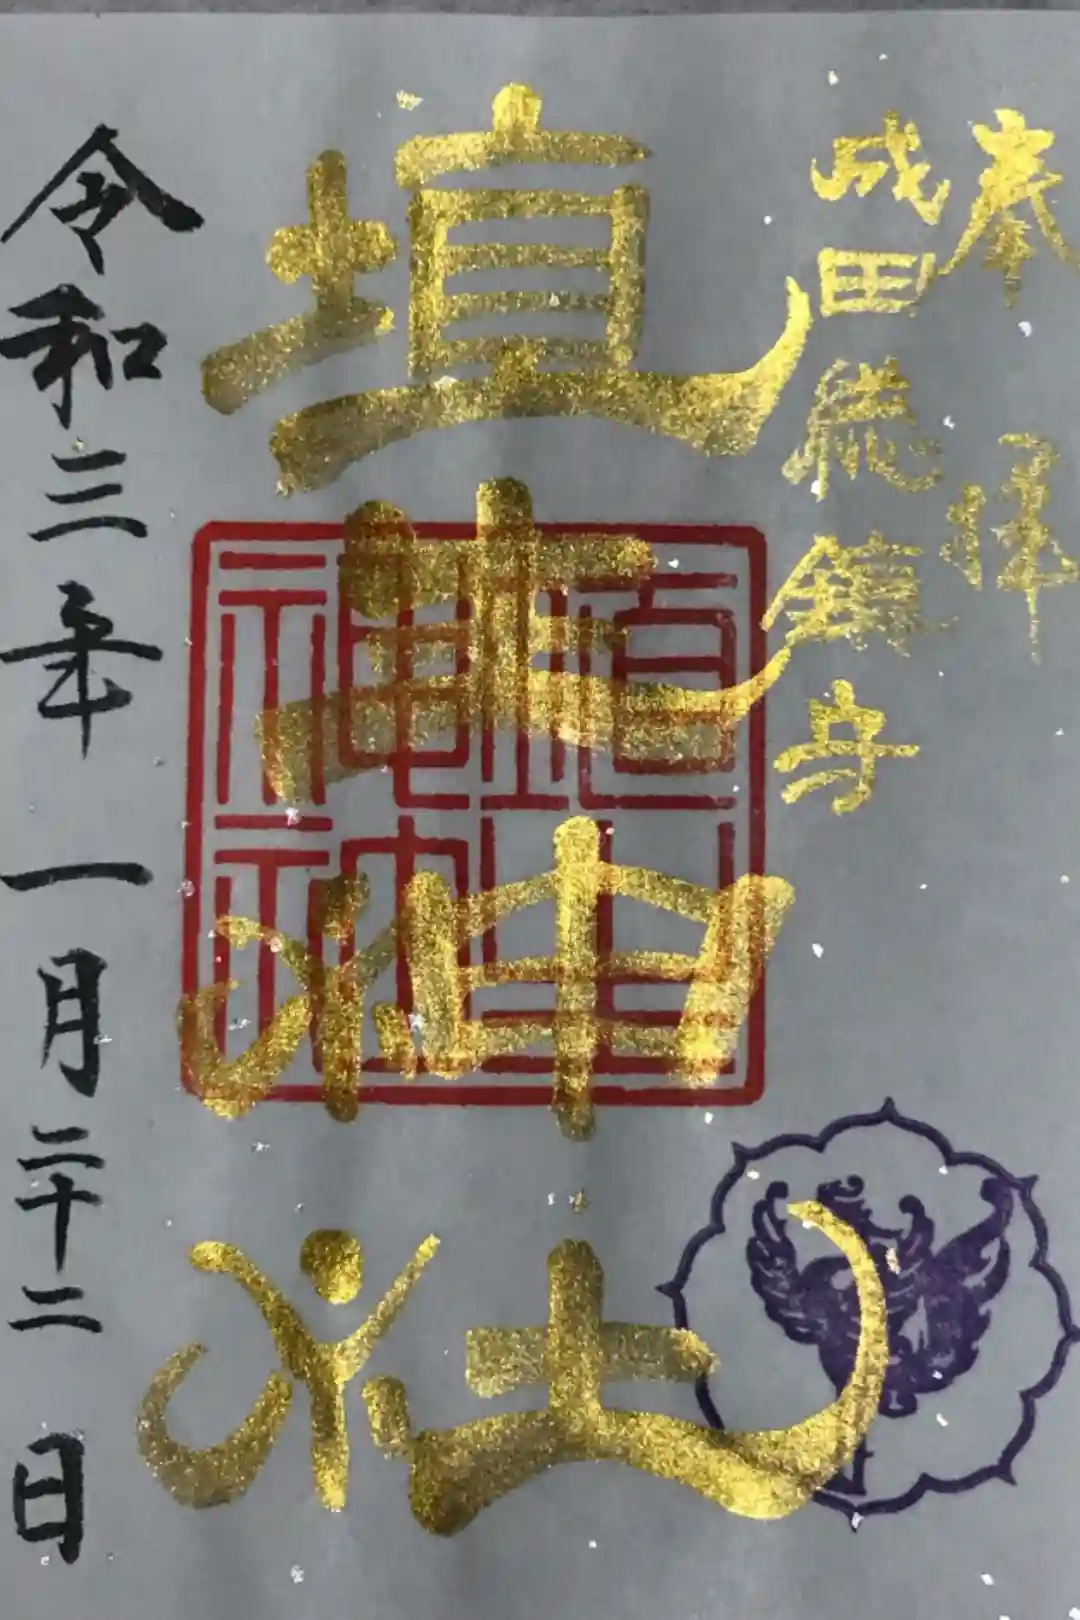 奉拝
成田総鎮守
埴生神社
埴生神社
令和三年一月二十二日